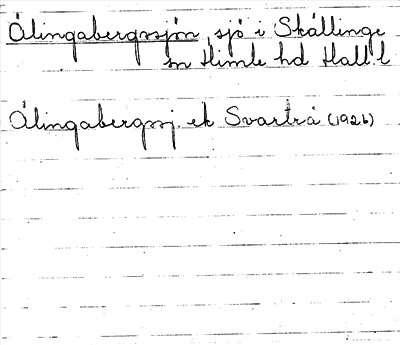 Ålingabergssjön, sjö i Skällinge
sn Himle hd Hall. l
Ålingabergssj. ek Svartrå (1926)